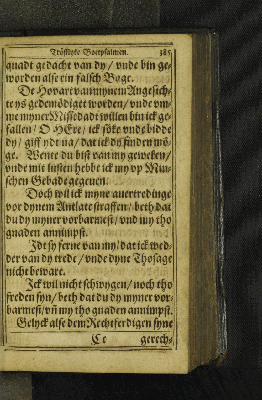 Tröstlyke Boetpsalmen. 385
quadt gedacht van dy / vnde bin ge-
worden alse ein falsch Boge.
De Hovart van mynem Angesich-
te ys gedemödiget worden / vnde vm-
me myner Missedadt willen bin ick ge-
fallen / O HEre / ick söke vnde bidde
dy / giff ydt na / dat ick dy finden mö-
ge. Wente du bist van my geweken /
vnde mit lusten hebbe ick my vp Min-
schen Gebade gegeuen.
Doch wil ick myne auertredinge
vor dynem Antlate straffen / beth dat
du dy myner vorbarmest / vnd my tho
gnaden annimpst.
Idt sy ferne van my / dat ick wed-
der van dy trede / vnde dyne Thosage
nicht beware.
Ick wil nicht schwygen / noch tho
freden syn / beth dat du dy myner vor-
barmest / vñ my tho gnaden annimpst.
Gelyck alse dem Rechtferdigen syne
Cc gerech-